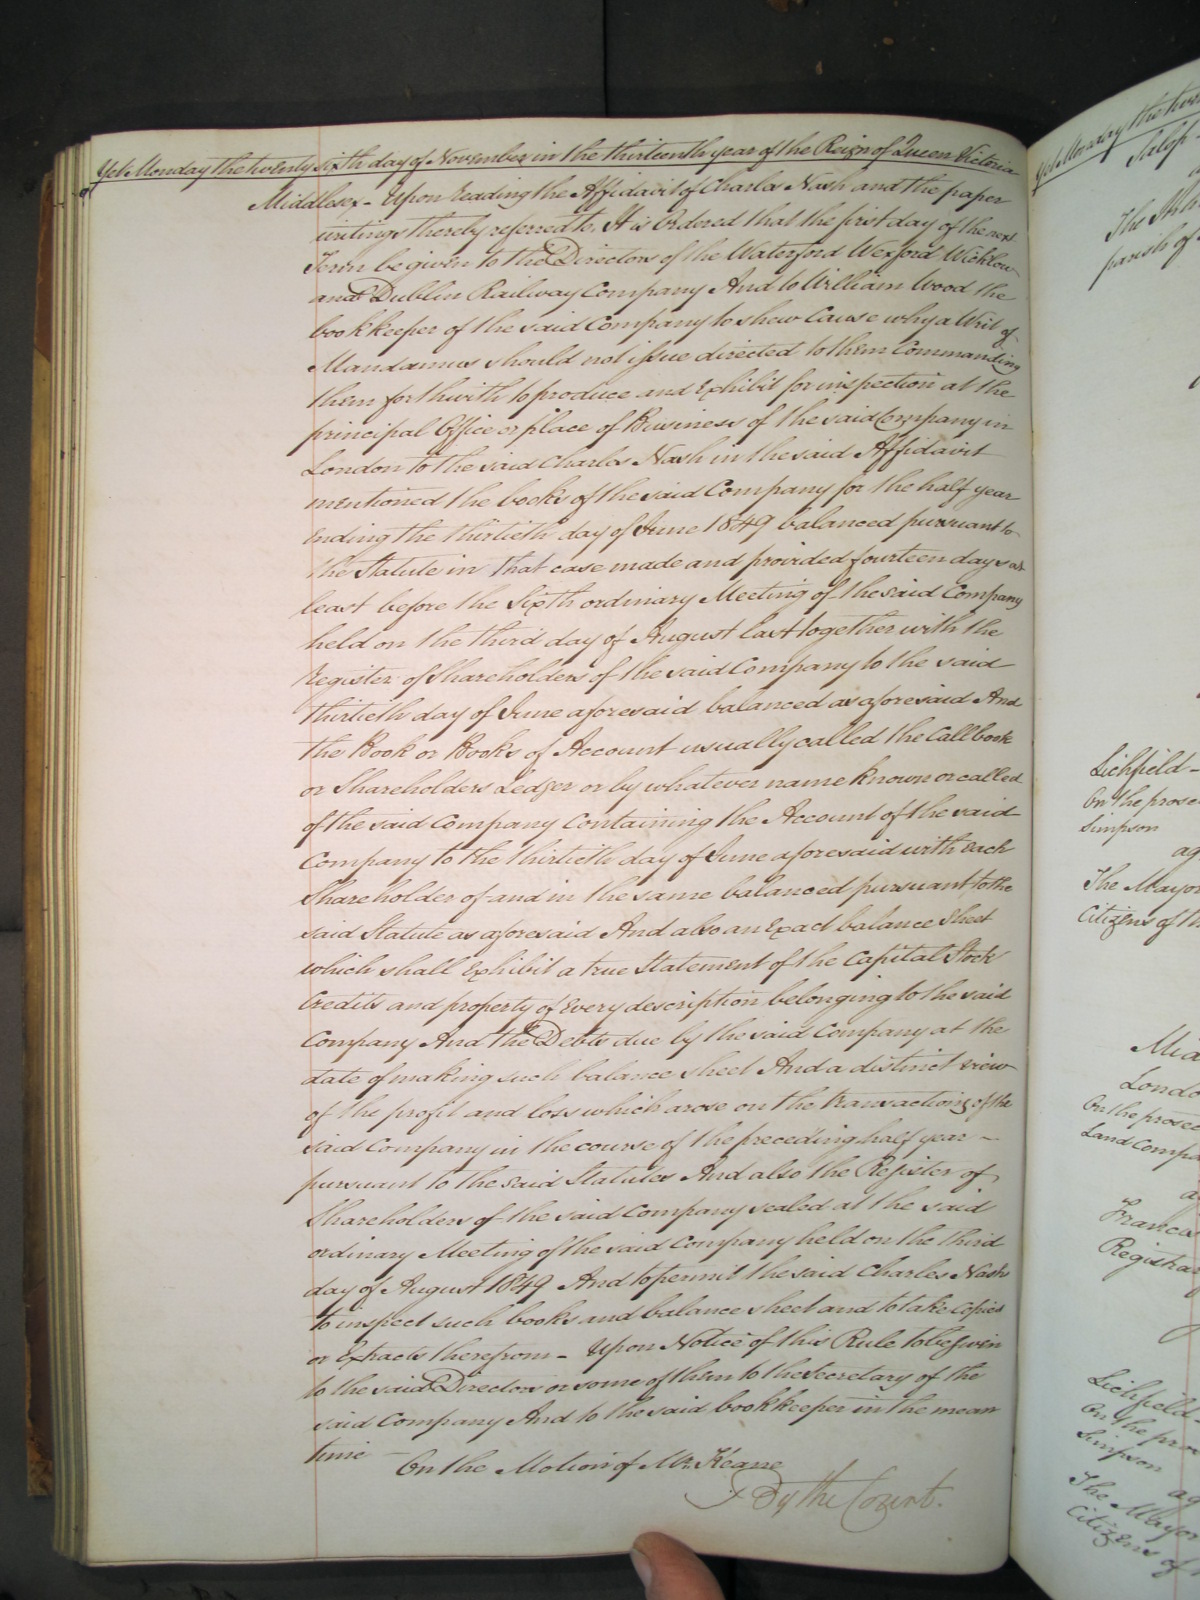 Yet Monday the twenty sixth day of November in the thirteenth year of the Reign of Queen Victoria
Middlesex - Upon reading the Affidavit of Charles Nash and the paper
writings thereby referred to. It is Ordered that the first day of the next
Term be given to the Directors of the Waterford Wexford Wicklow
and Dublin Railway Company And to William Wood the
bookkeeper of the said Company to shew Cause why a Writ of
Mandamus should not issue directed to them Commanding
them forthwith to produce and Exhibit for inspection at the
principal Office or place of Business of the said Company in
London to the said Charles Nash in the said Affidavit
mentioned the books of the said Company for the half year
ending the thirtieth day of June 1849 balanced pursuant to
the Statute in that case made and provided fourteen days at
least before the Sixth ordinary Meeting of the said Company
held on the third day of August last together with the
Register of Shareholders of the said Company to the said
thirtieth day of June aforesaid balanced as aforesaid And
the Book or Books of Account usually called the Callbook
or Shareholders Ledger or by whatever name known or called
of the said Company Containing the Account of the said
Company to the thirtieth day of June aforesaid with each
Shareholder of and in the same balanced pursuant to the
said Statute as aforesaid And also an Exact balance Sheet
which shall Exhibit a true Statement of the Capital Stock
Credits and property of Every description belonging to the said
Company And the Debts due by the said Company at the
date of making such balance sheet And a distinct view
of the profit and loss which arose on the transactions of the
said Company in the course of the preceding half year -
pursuant to the said Statutes And also the Register of
Shareholders of the said Company sealed at the said
ordinary Meeting of the said Company held on the third
day of August 1849 And to permit the said Charles Nash
to inspect such books and balance sheet and to take Copies
or Extracts therefrom - Upon Notice of this Rule to be given
to the said Directors or some of them to the Secretary of the
said Company And to the said bookkeeper in the mean
time - On the Motion of Mr. Keane
By the Court.
Yet Monday the
Salop
The
parish of
Lichfield -
On the
Simpson
ag
The Mayor
Citizens of th
Mid
Londo
On the
Land Comp
a
Registrar
Lichfield -
On the
Simpson
ag
The Mayor
Citizens of